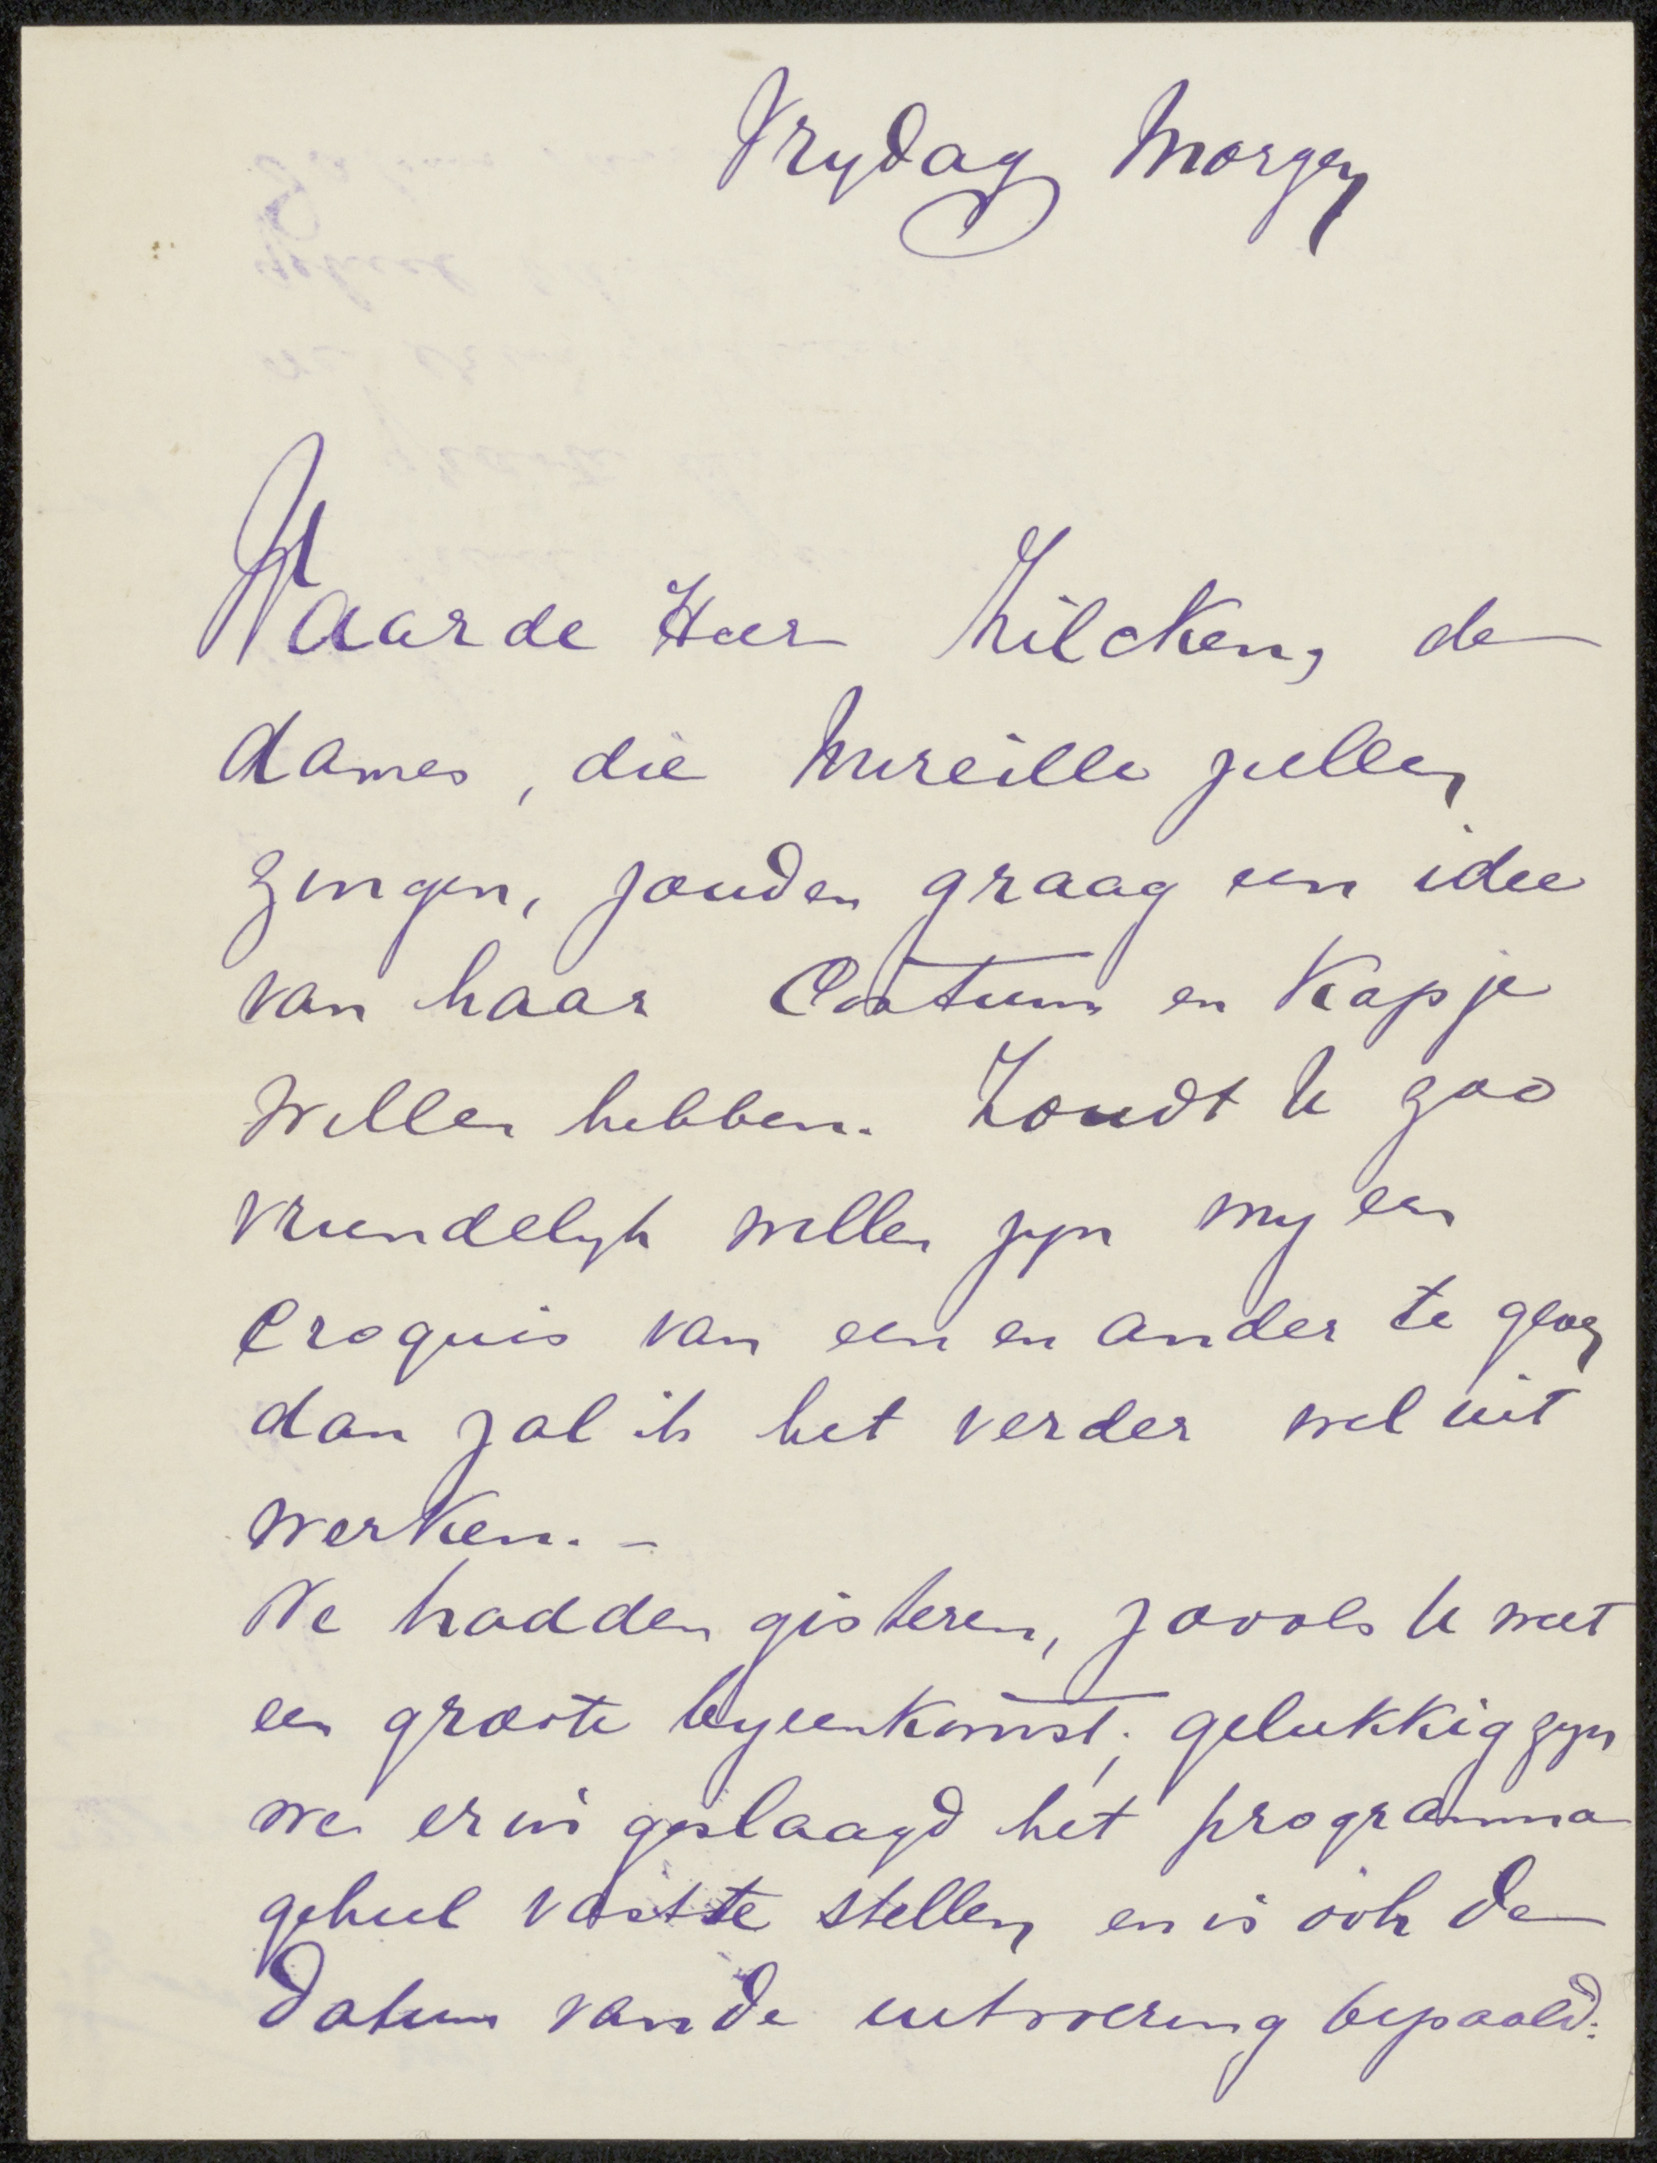 Vrydag Morgen
Waarde Heer Zilcken, de
dames, die Mireille zullen
zingen, zouden graag een idee
van haar Costuum en Kapje
willen hebben. Zoudt U zoo
vriendelyk willen zyn my een
Croquis van een en ander te geven
dan zal ik het verder wel uit
werken. -
We hadden gisteren, zooals U weet
een groote byeenkomst; gelukkig zyn
we er in geslaagd het programma
geheel vast te stellen en is ook de
datum van de uitvoering bepaald.